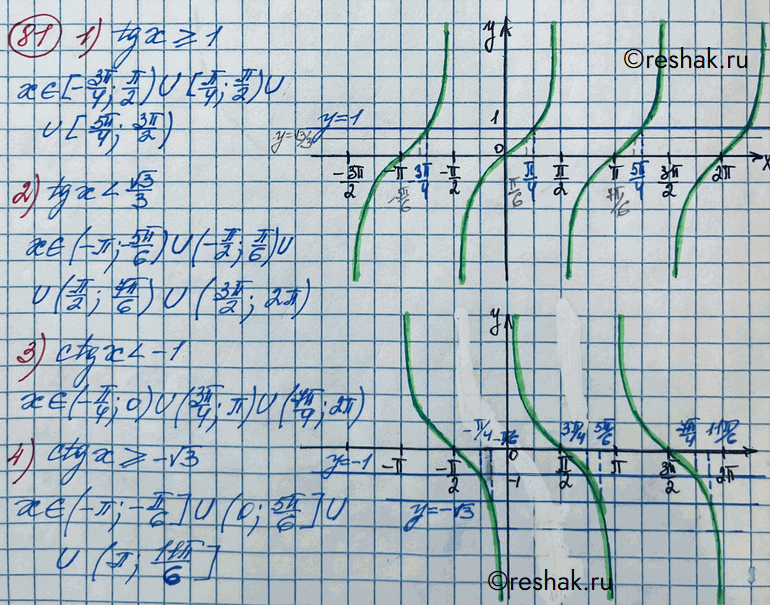 81 1) tg x ≥ 1
x ∈ [-3π/4; π/2) ∪ [π/4; π/2) ∪
∪ [5π/4; 3π/2)
2) tg x < √3/3
x ∈ (-π; -5π/6) ∪ (-π/2; π/6) ∪
∪ (π/2; 7π/6) ∪ (3π/2; 2π)
3) ctg x < -1
x ∈ (-π/4; 0) ∪ (3π/4; π) ∪ (7π/4; 2π)
4) ctg x ≥ -√3
x ∈ (-π; -π/6] ∪ (0; 5π/6] ∪
∪ (π; 11π/6]
y
©reshak.ru
y=1
1
y=√3/3
0
x
-3π/2 -π 3π/4 -π/2 π/4 π/2 π 5π/4 3π/2 2π
-5π/6 π/6 7π/6
y
-π/4 -π/6 3π/4 5π/6 7π/4 11π/6
y=-1 -π -π/2 0 π/2 π 3π/2 2π
-1
y=-√3
©reshak.ru